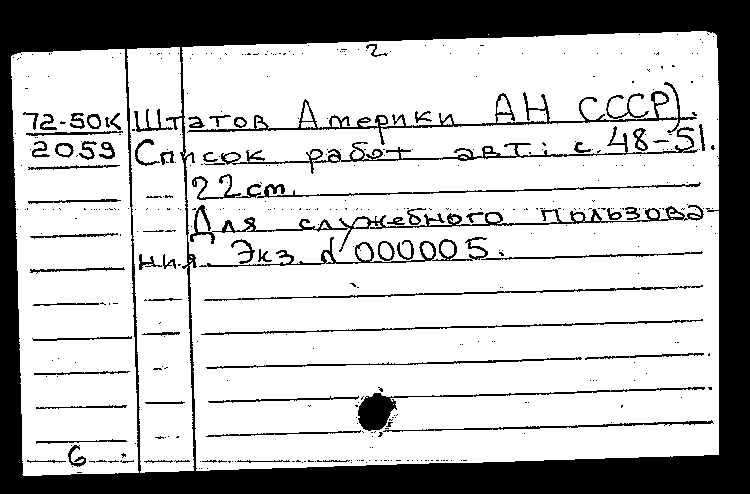 2
72-50К Штатов Америки АН СССР).
2059 Список работ авт.: с. 48-51.
22 cm.
Для служебного пользова-
ния. Экз. №000005.
6